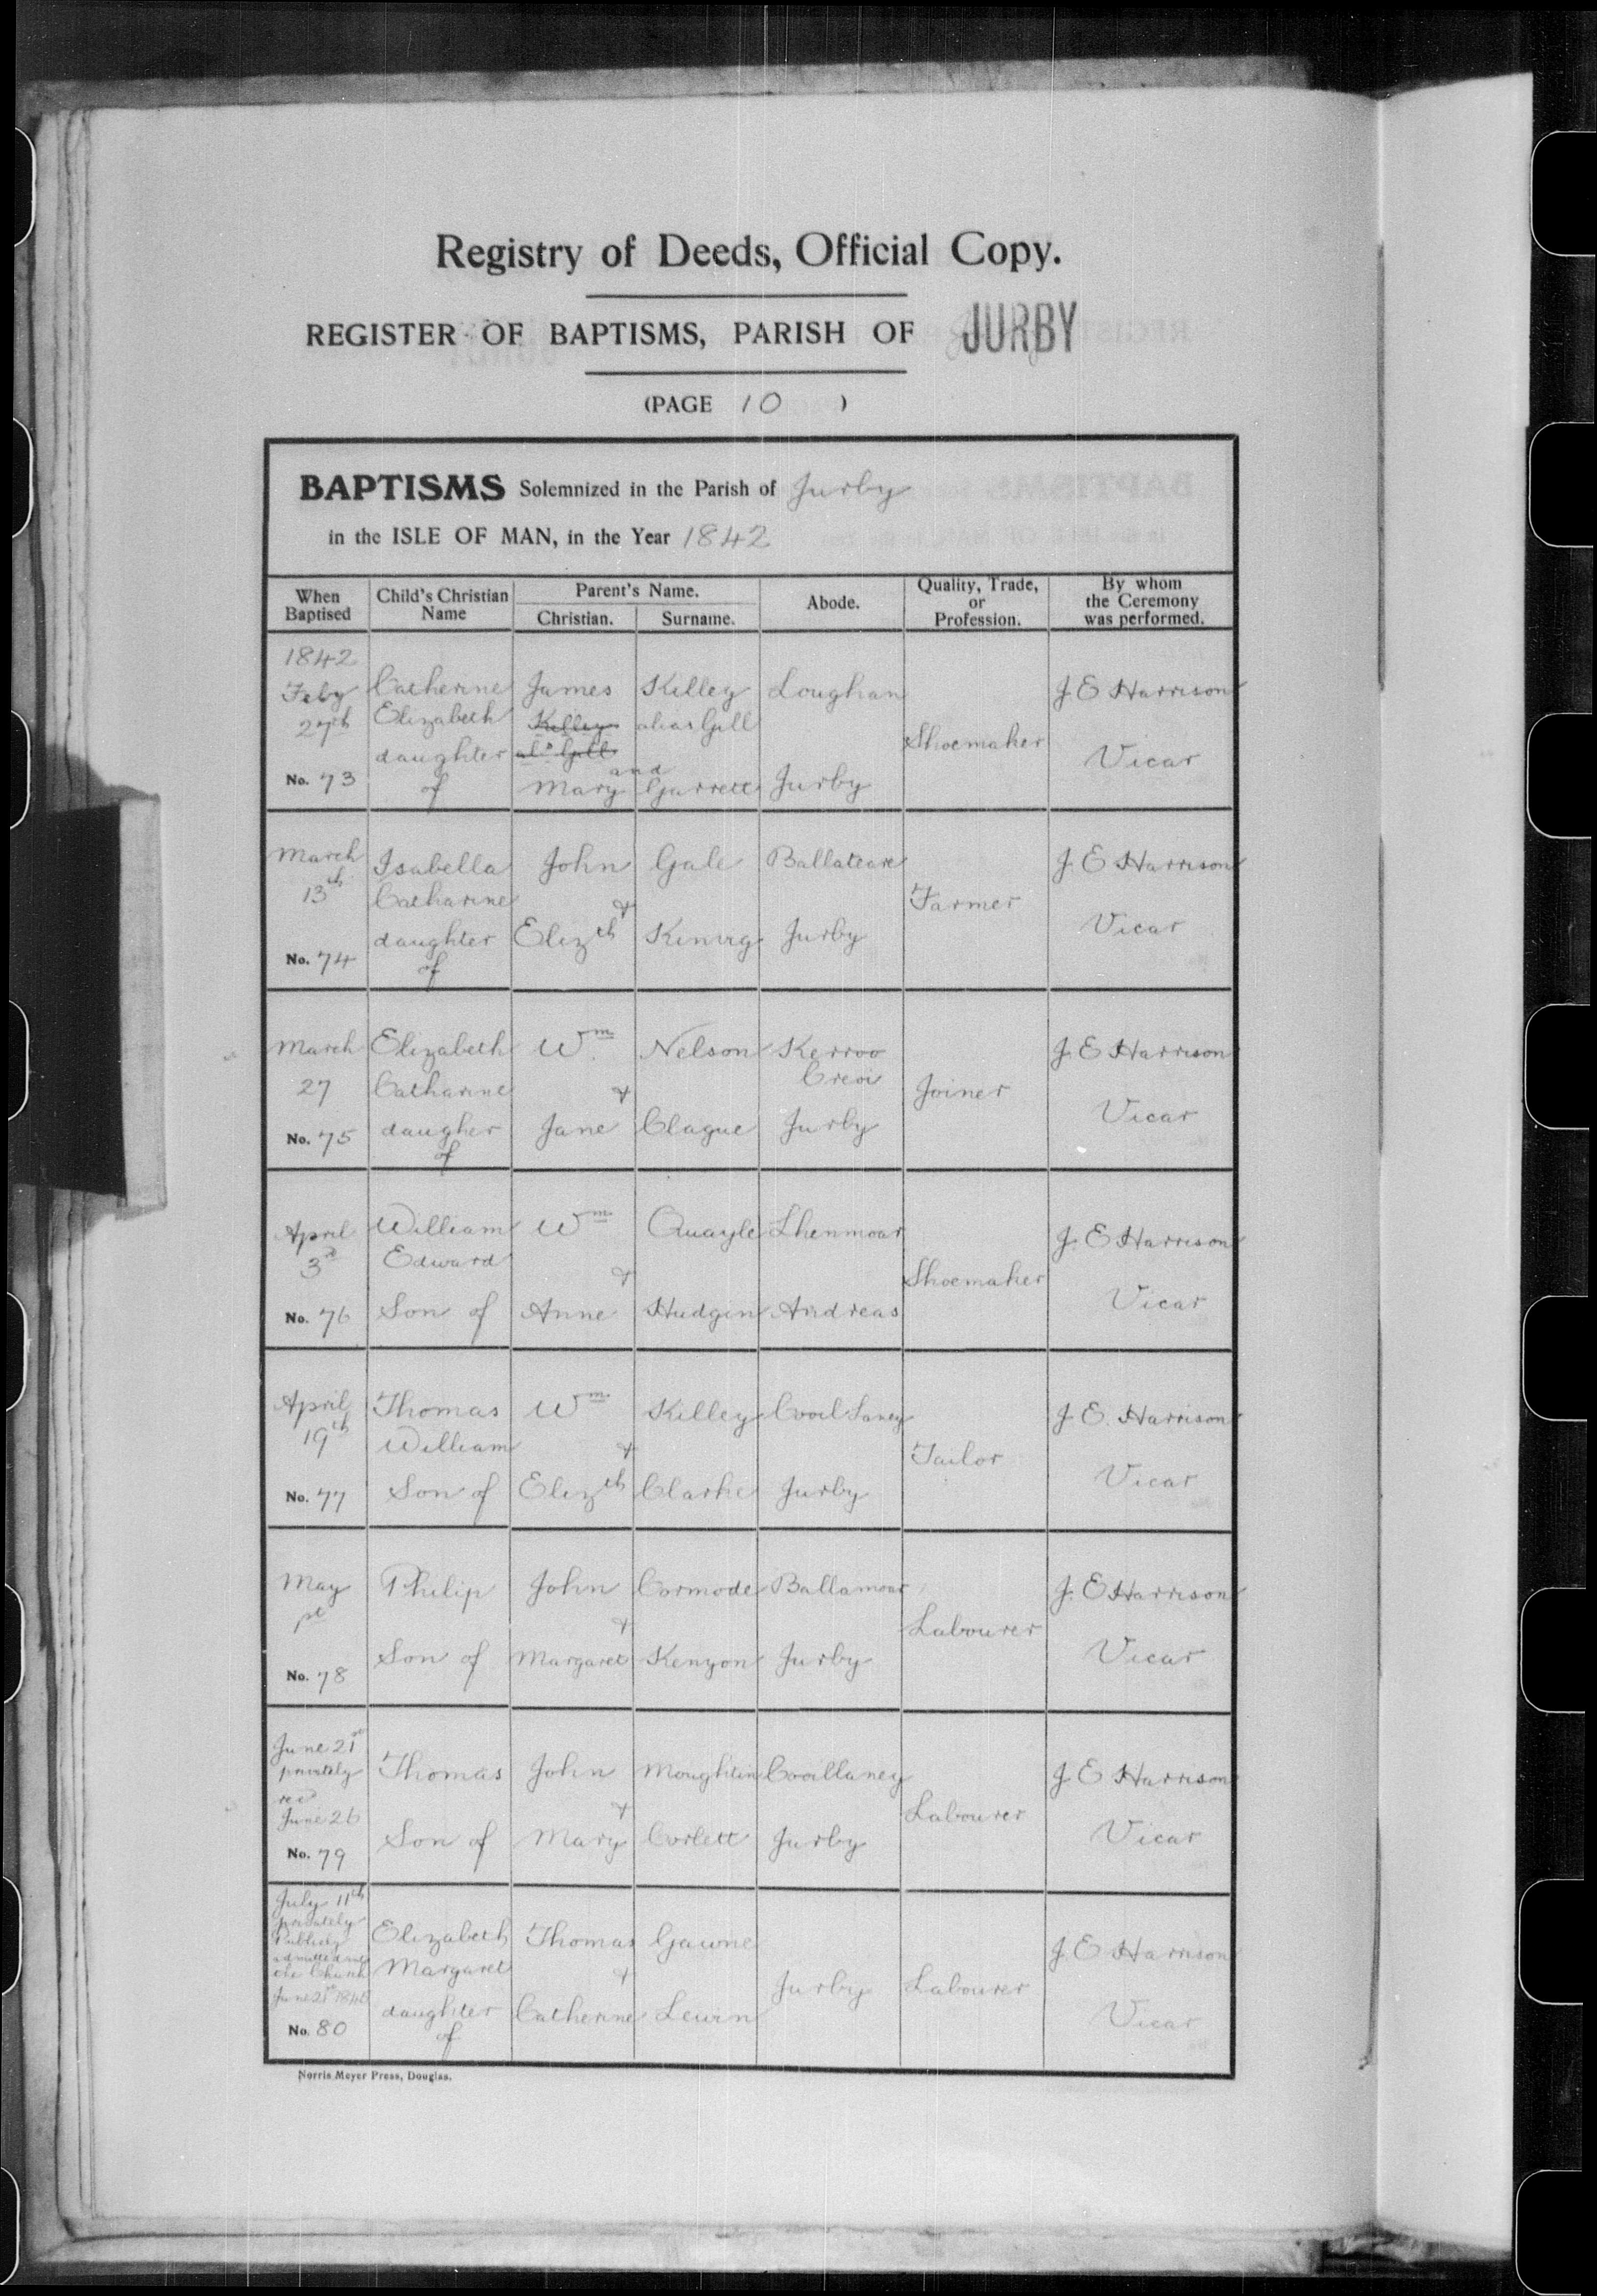 Registry of Deeds, Official Copy.
REGISTER OF BAPTISMS, PARISH OF JURBY
(PAGE 10 )
BAPTISMS Solemnized in the Parish of Jurby
in the ISLE OF MAN, in the Year 1842
When Baptised
Child's Christian Name
Parent's Name.
Christian.
Surname.
Abode.
Quality, Trade, or Profession.
By whom the Ceremony was performed.
1842
Feby
27th
No. 73
Catherine
Elizabeth
daughter
of
James
Kelley
als Gill
and
Mary
Killey
alias Gill
Garrett
Loughan
Jurby
Shoemaker
J. E Harrison
Vicar
March
13th
No. 74
Isabella
Catharine
daughter
of
John
&
Elizth
Gale
Kinvig
Ballateare
Jurby
Farmer
J. E Harrison
Vicar
March
27
No. 75
Elizabeth
Catharine
daugher
of
Wm
&
Jane
Nelson
Clague
Kerroo
Jurby
Joiner
J. E Harrison
Vicar
April
3rd
No. 76
William
Edward
Son of
Wm
&
Anne
Quayle
Hudgin
Lhenmoar
Andreas
Shoemaker
J. E Harrison
Vicar
April
19th
No. 77
Thomas
William
Son of
Wm
&
Elizth
Killey
Clarke
Jurby
Tailor
J. E. Harrison
Vicar
May
1st
No. 78
Philip
Son of
John
&
Margaret
Cormode
Kenyon
Ballamoar
Jurby
Labourer
J. E Harrison
Vicar
June 21st
privately
recd
June 26
No. 79
Thomas
Son of
John
&
Mary
Moughtin
Corlett
Jurby
Labourer
J. E Harrison
Vicar
July 11th
privately
Publicly
admitted into
the Church
June 21st
No. 80
Elizabeth
Margaret
daughter
of
Thomas
&
Catherine
Gawne
Lewin
Jurby
Labourer
J. E Harrison
Vicar
Norris Meyer Press, Douglas.